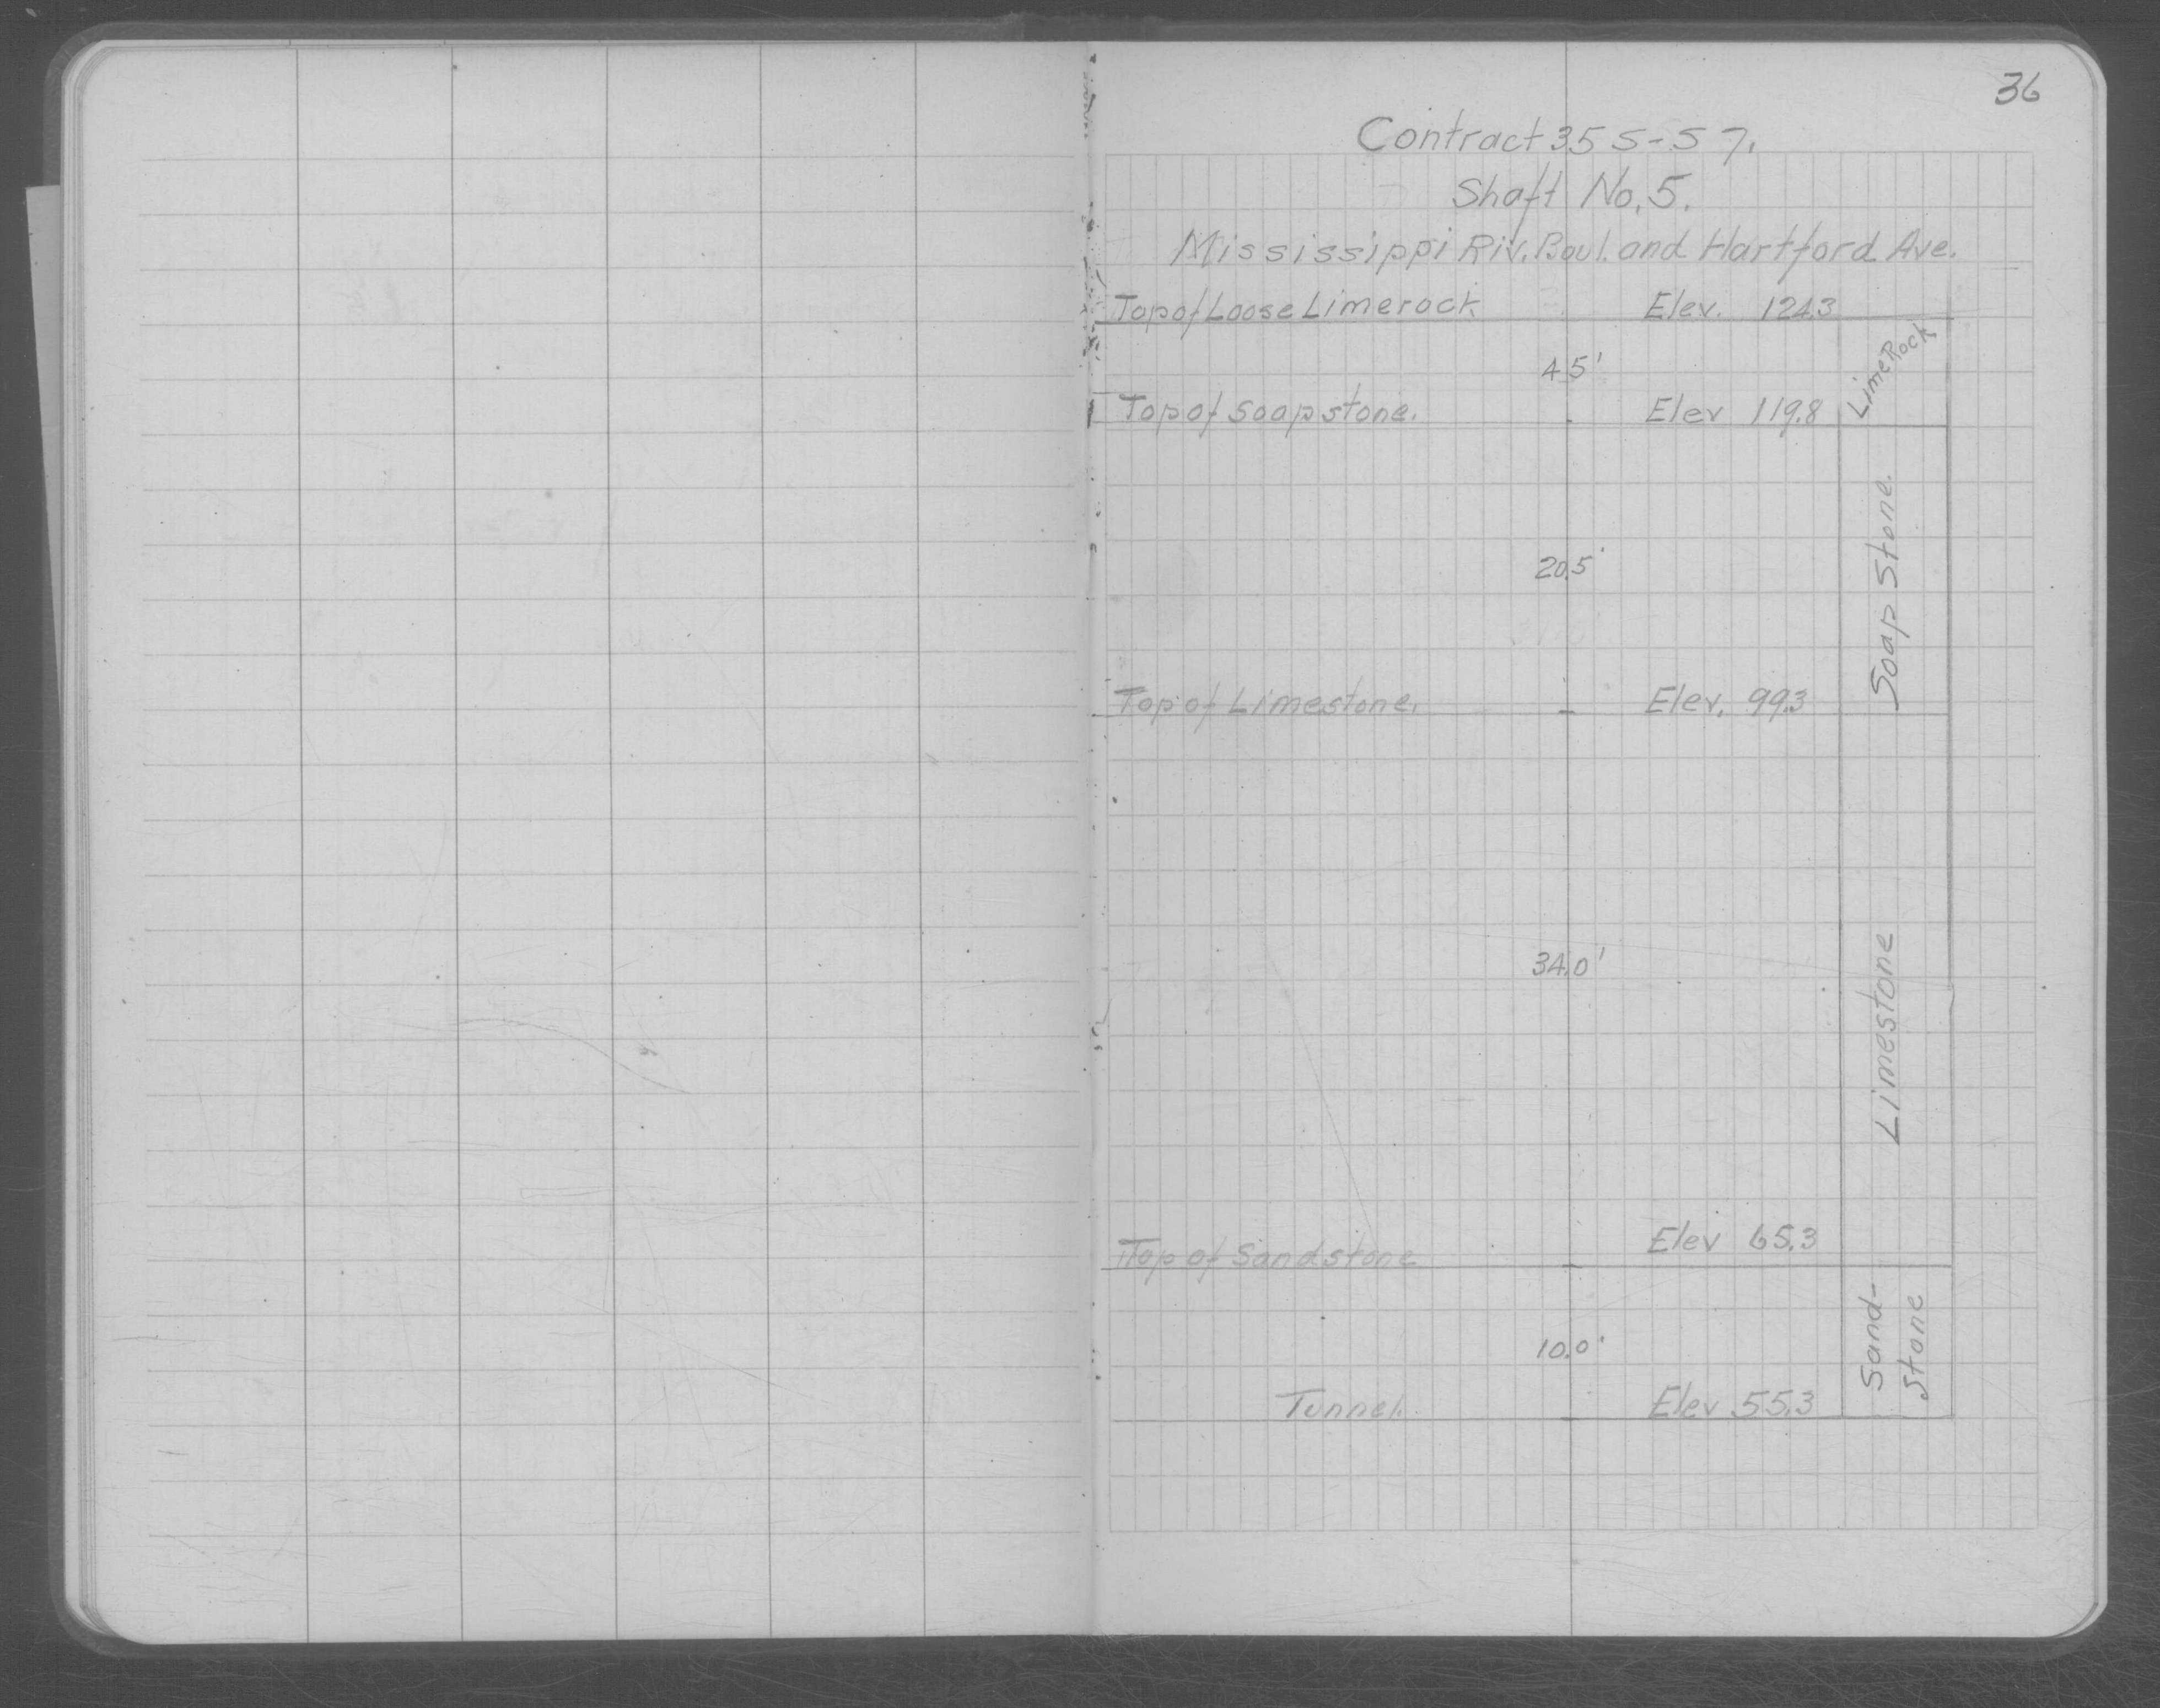 36
Contract 355-S7.
Shaft No. 5.
Mississippi Riv. Boul. and Hartford Ave.
Top of Loose Limerock Elev. 124.3
4.5'
Lime Rock
Top of Soapstone. Elev 119.8
20.5'
Soap Stone.
Top of Limestone. Elev. 99.3
34.0'
Limestone
Top of Sandstone Elev 65.3
10.0'
Sand-
Stone
Tunnel. Elev 55.3